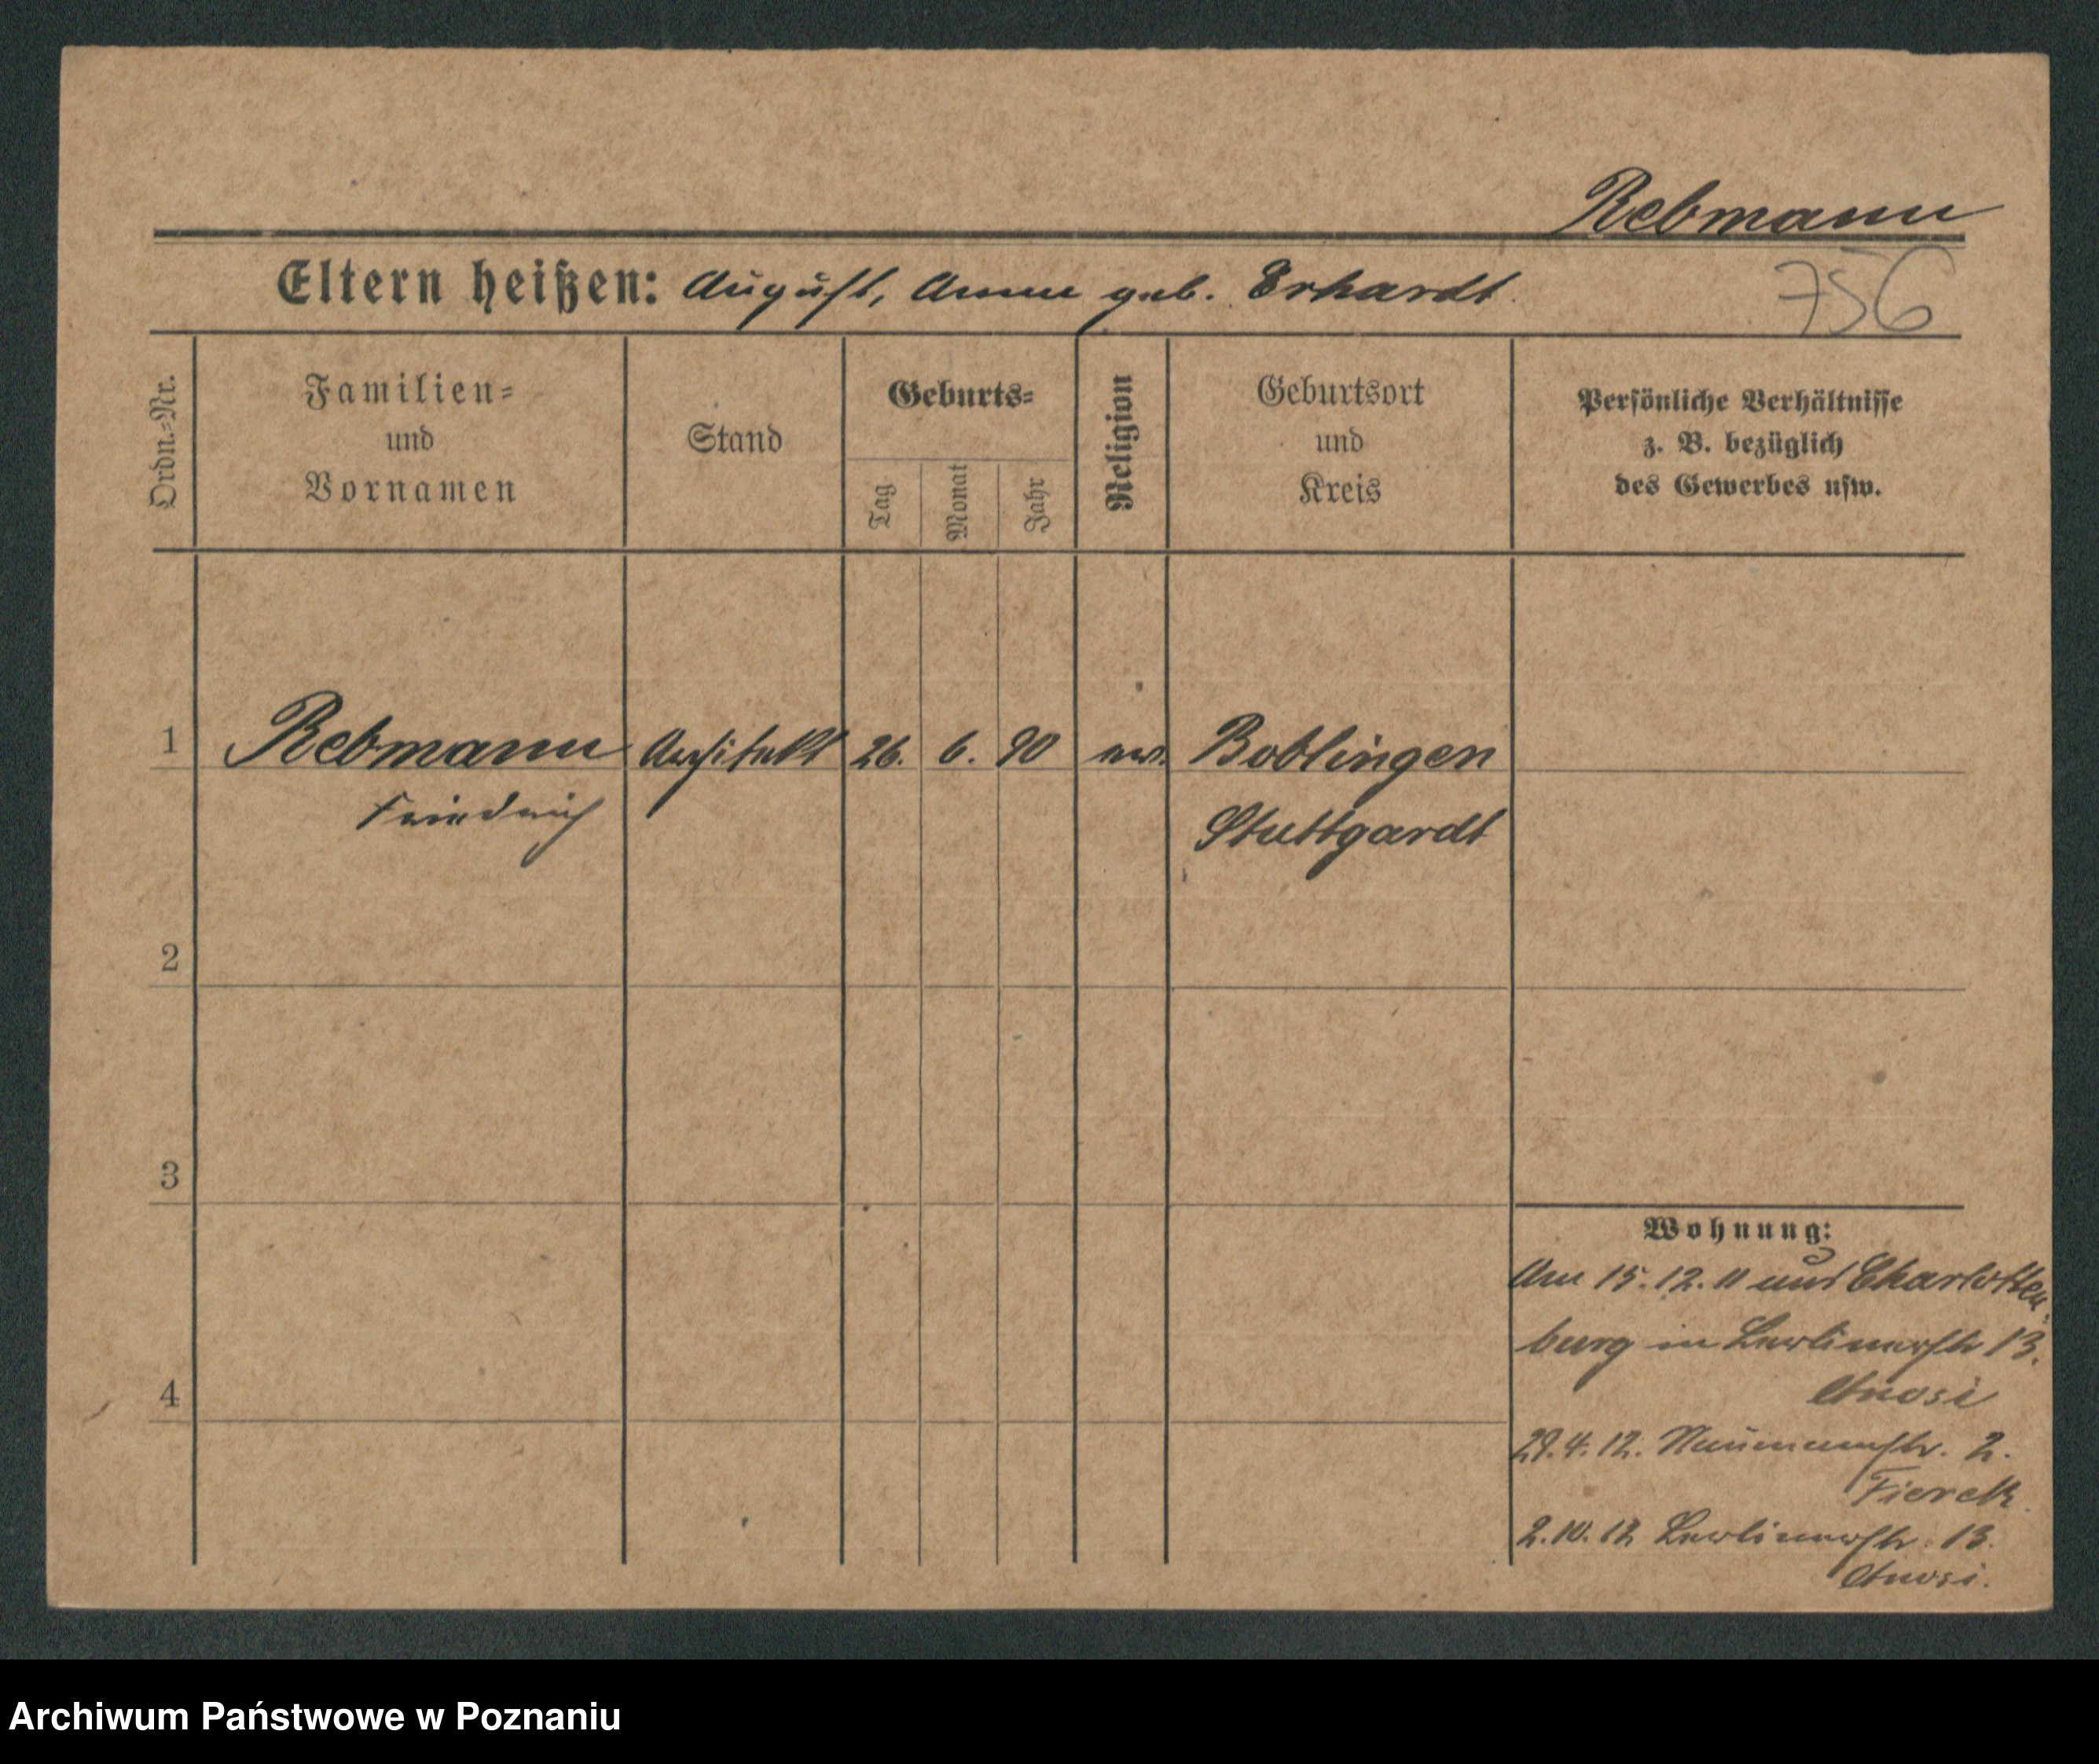 Rebmann
Eltern heißen: August, Anna geb. Erhardt.
756
Ordn.-Nr.
Familien-
und
Vornamen
Stand
Geburts-
Tag
Monat
Jahr
Religion
Geburtsort
und
Kreis
Persönliche Verhältnisse
z. B. bezüglich
des Gewerbes usw.
1 Rebmann Architekt 26. 6. 90 ev. Boblingen
Friedrich Stuttgardt
2
3
4
Wohnung:
Am 15.12.11 aus Charlotten
burg in Berlinerstr 13.
29.4.12. Naumannstr. 2.
Fierek
2.10.12 Berlinerstr. 13.
Archiwum Państwowe w Poznaniu